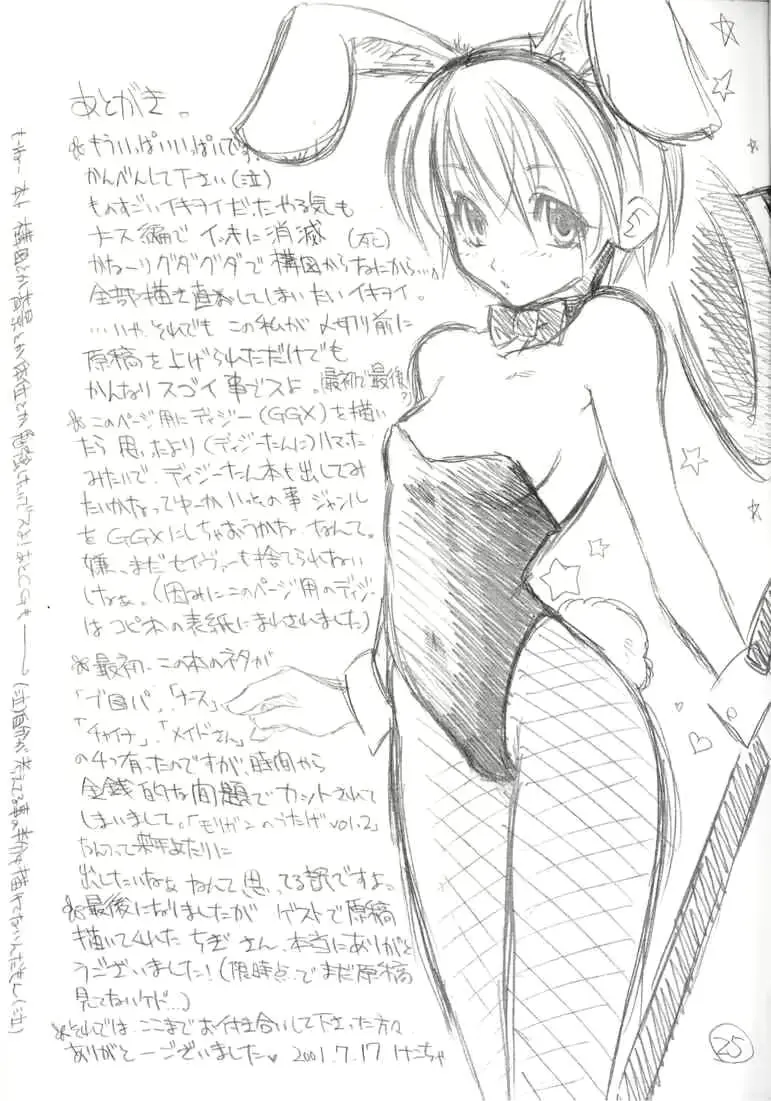 あとがき。
※もういっぱいいっぱいです、
かんべんして下さい(泣)
ものすごいイキヲイだったやる気も
ナース編でイッキに消滅(死)
かなーりグダグダで構図からなにから…、
全部描き直おしてしまいたいイキヲイ。
…いや、それでもこの私が〆切り前に
原稿を上げられただけでも
かんなりスゴイ事でスよ。(最初で最後?)
※このページ用にディジー(GGX)を描い
たら思ったより(ディジーたんに)ハマった
みたいで、ディジーたん本も出してみ
たいかなってゆーかいっその事ジャンル
をGGXにしちゃおうかな、なんて。
嫌、まだセイヴァーも捨てられない
しなぁ。(因みにこのページ用のディジー
はコピ本の表紙にまわされました)
※最初、この本のネタが
「ブ
「ナース」、
「チャイナ」、「メイドさん」
の4つ有ったのですが、時間から
金銭的な問題でカットされて
しまいまして。「モリガンのうたげvol.2」
なんつって来年あたりに
出したいなぁなんて思ってる訳ですよ。
※最後になりましたがゲストで原稿
描いてくれたちぎさん、本当にありがと
うございました!(現時点でまだ原稿
見てないケド…)
※それでは、ここまでお付き合いして下さった方々
ありがとーございました♥ 2001.7.17
あと構図とか背景とか
勉強したいデスよ!あとCGも
25